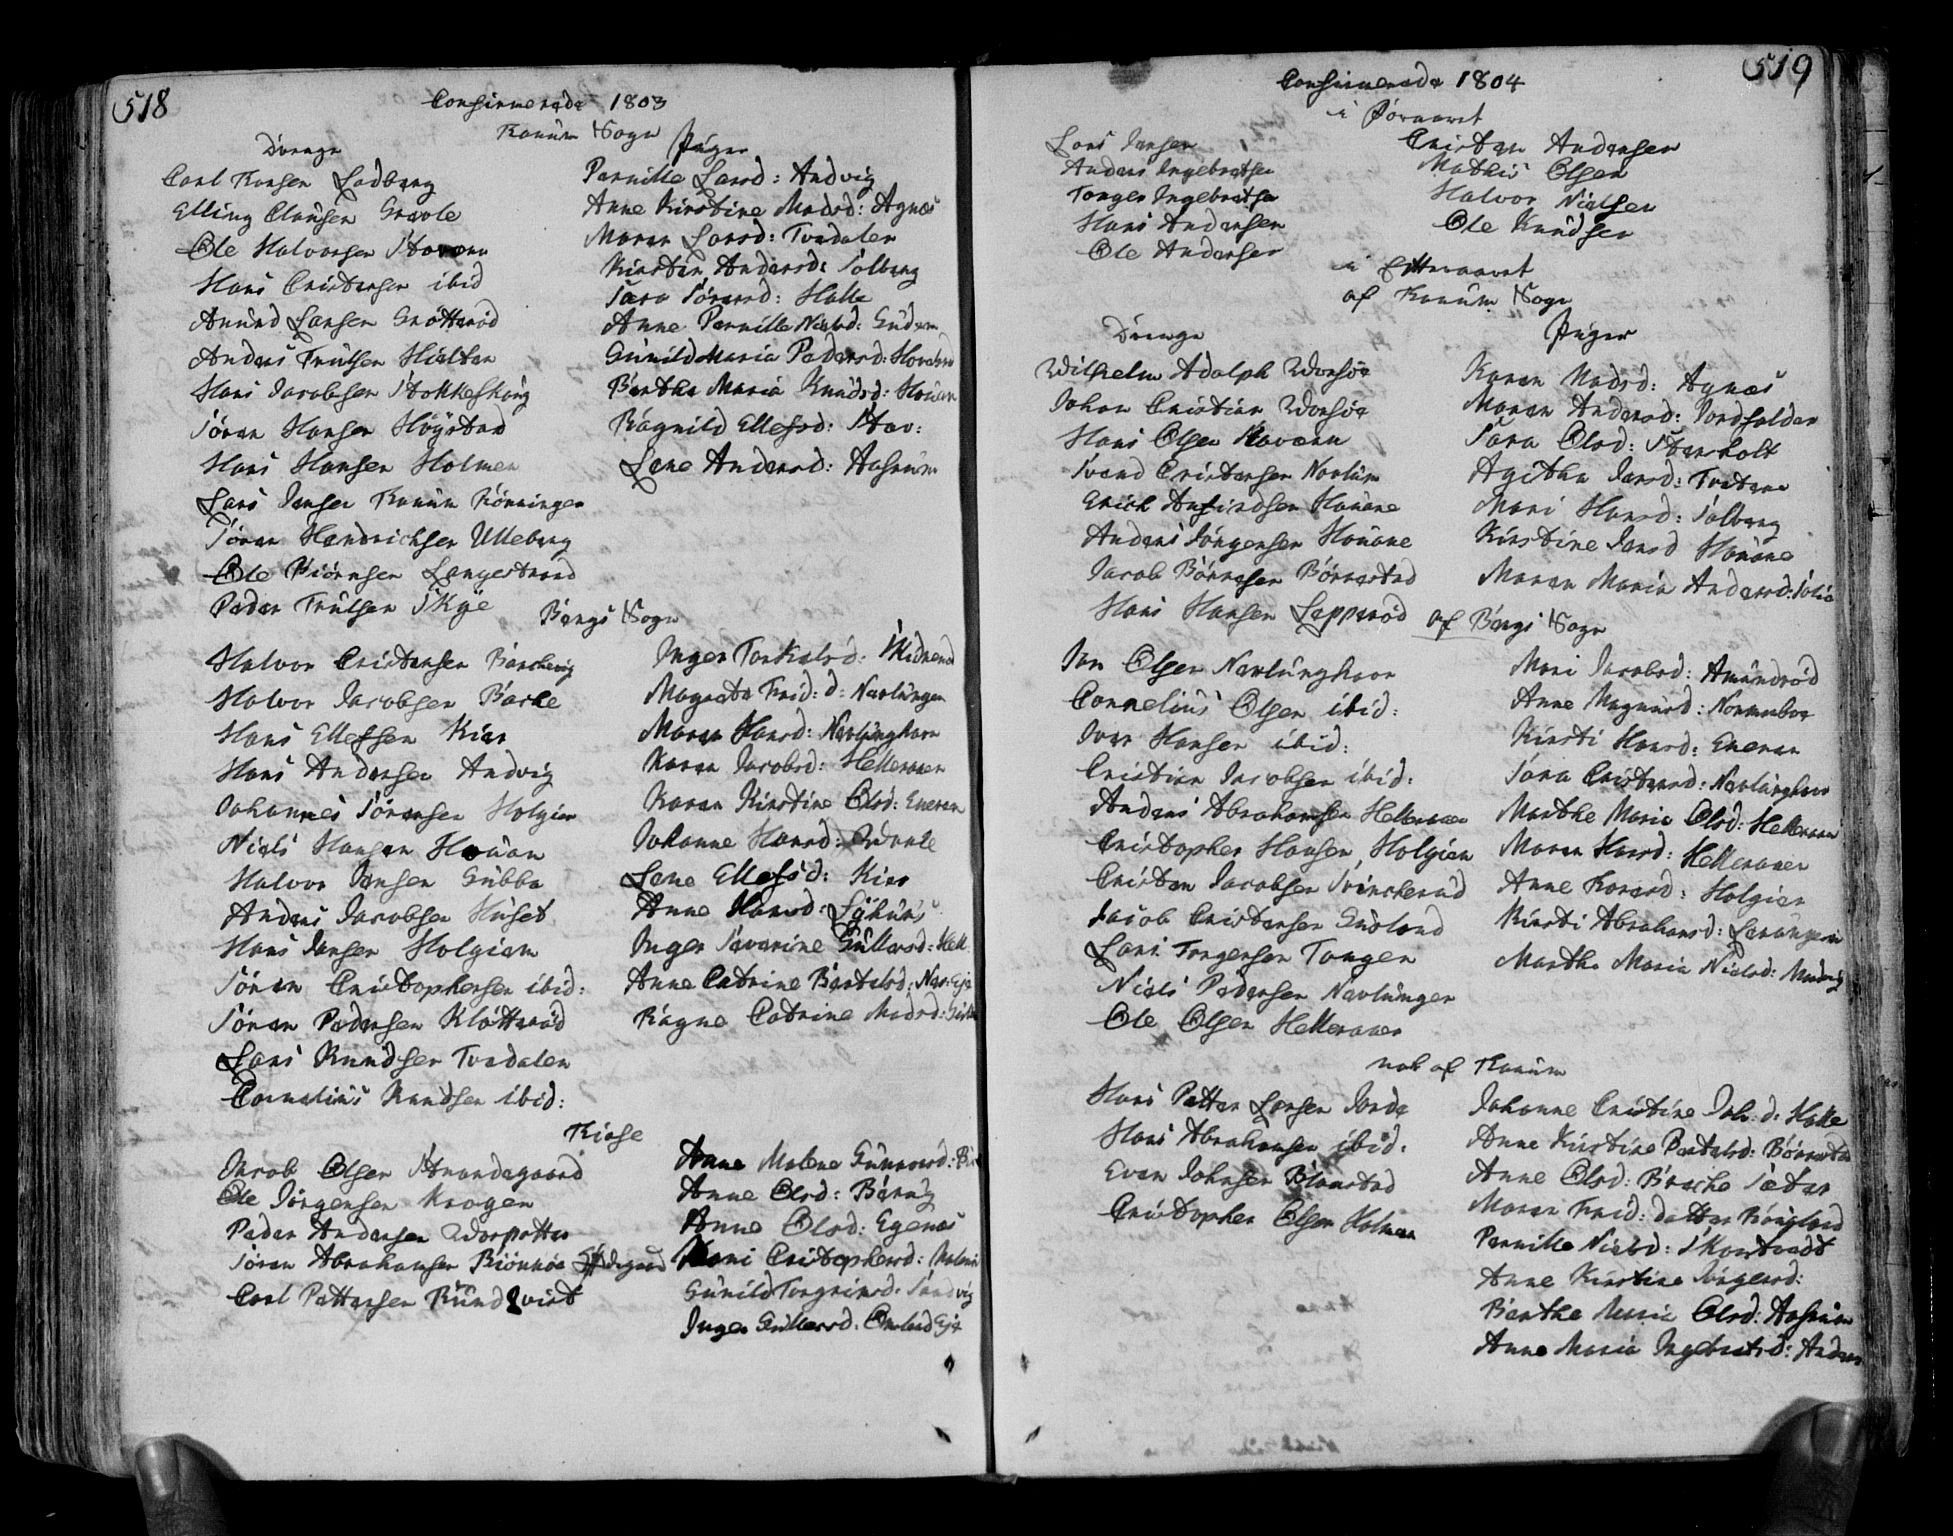 518
Confirmerede 1803
Tanum Sogn
Drenge
Carl Hansen Ladberg
Elling Clausen Gravle
Ole Halvorsen Stavern
Hans Cristensen ibid
Amund Larsen Grøtterød
Anders Trulsen Hielten
Hans Jacobsen Stokkeskoug
Søren Hansen Høystad
Hans Hansen Holmen
Lars Jensen Tanum Rønningen
Søren Hendrichsen Ulleberg
Ole Biørnsen Langestrand
Peder Trulsen Skye
Piger
Pernille Larsd: Andvig
Anne Kirstine Madsd: Agnæs
Maren Larsd: Tvedalen
Kirsten Andersd: Solberg
Sara Sørensd: Halle
Anne Pernille Nielsd:
Gunild Maria Pedersd:
Berthe Maria Knudsd: Houan
Ragnild Ellefsd: Stav:
Lene Andersd: Aasrum
Bergs Sogn
Halvor Cristensen Barchevig
Halvor Jacobsen Barke
Hans Ellefsen Kiær
Hans Andersen Andvig
Johannes Sørensen Holgien
Niels Hansen Houan
Halvor Jensen Gubbe
Anders Jacobsen Huset
Hans Jensen Holgien
Søren Cristophersen ibid:
Søren Pedersen Kløtterød
Lars Knudsen Tvedalen
Cornelius Knudsen ibid:
Inger Torkelsd:
Magrete Frid: d: Nevlungen
Maren Hansd: Nevlunghavn
Karen Jacobsd: Helleraaen
Karen Kirstine Olsd: Eneren
Johanne Hansd:
Lene Ellefsd: Kiær
Anne Hansd:
Inger Severine Gullersd: Hell
Anne Catrine Bertelsd: Nes: Eje
Ragne Catrine Madsd:
Kirke
Jacob Olsen
Ole Jørgensen Krogen
Peder Andersen
Søren Abrahamsen
Carl Pettersen Rundqvist
Anne Malene Gunnersd:
Anne Olsd:
Anne Olsd: Egenæs
Mari Cristophersd:
Gunild Torgrimsd: Sandvig
Inger Gullersd: Eje
519
Confirmerede 1804
i Foraaret
Lars Jensen
Anders Ingebretsen
Torger Ingebretsen
Hans Andersen
Ole Andersen
Cristen Andersen
Mathis Olsen
Halvor Nielsen
Ole Knudsen
i Efteraaret
af Tanum Sogn
Drenge
Wilhelm Adolph
Johan Cristian
Hans Olsen Kaveren
Svend Cristensen Norlum
Erich Anfindsen Houane
Anders Jørgensen Houane
Jacob Børresen Børrestad
Hans Hansen Lepperød
Piger
Karen Madsd: Agnæs
Maren Andersd: Jordfalden
Sara Olsd: Stenholt
Agethe Jensd: Tvetene
Mari Hansd: Solberg
Kirstine Jensd Houane
Maren Maria Andersd:
af Bergs Sogn
Jan Olsen Nevlunghavn
Cornelius Olsen ibid:
Iver Hansen ibid:
Cristian Jacobsen ibid:
Anders Abrahamsen Helleraaen
Cristopher Hansen, Holgien
Cristen Jacobsen
Jacob Cristensen
Lars Torgersen Tangen
Niels Pedersen Nevlungen
Ole Olsen Helleraaen
Mari Jacobsd: Amundrød
Anne Magnusd:
Kirsti Hansd: Eneren
Sara Cristensd: Nevlunghavn
Marthe Maria Olsd: Helleraaen
Maren Hansd: Helleraaen
Anne Torersd: Holgien
Kirsti Abrahamsd:
Marthe Maria Nielsd:
nok af Tanum
Hans Petter Larsen Jorde
Hans Abrahamsen ibid.
Even Johnsen
Cristopher Olsen Holmen
Johanne Cristine Joh: d: Halle
Anne Kirstine Bertelsd: Børrestad
Anne Olsd:
Maren Frid: datter
Pernille Nielsd:
Anne Kirstine Jørgensd:
Berthe Maria Olsd: Aasrum
Anne Maria Ingebretsd: